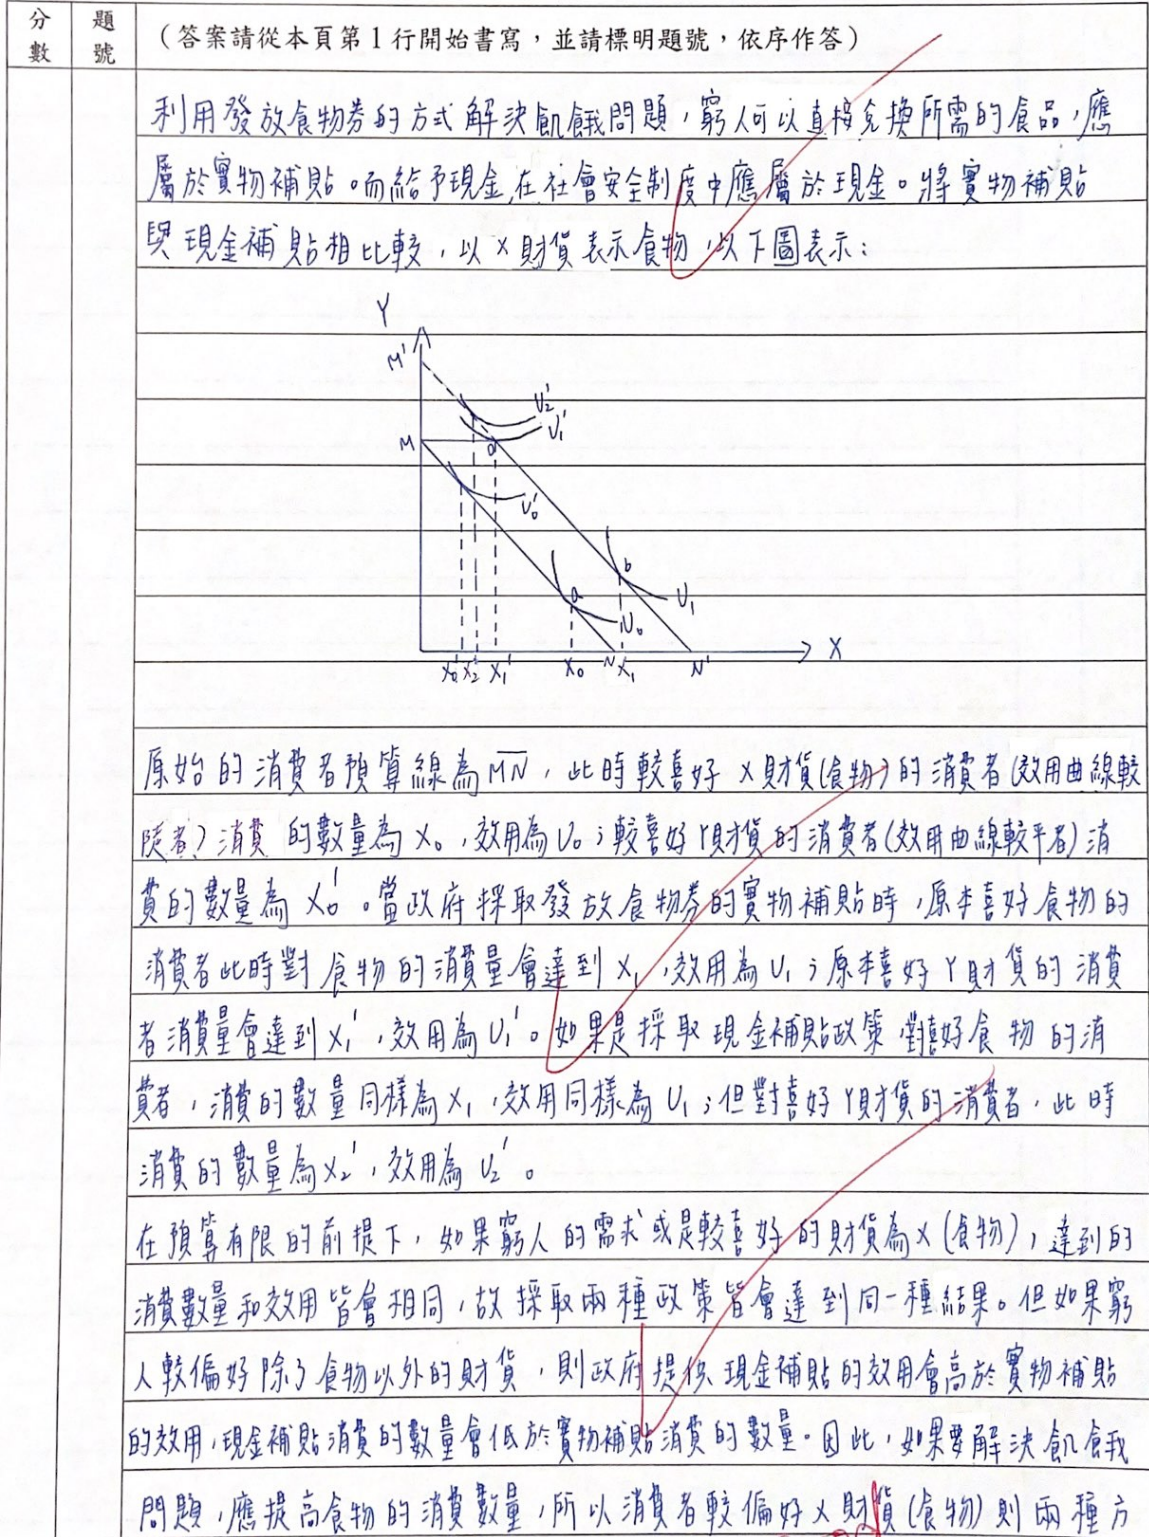 分數
題號
（答案請從本頁第1行開始書寫，並請標明題號，依序作答）
利用發放食物券的方式解決飢餓問題，窮人可以直接兌換所需的食品，應
屬於實物補貼。而給予現金在社會安全制度中應屬於現金。將實物補貼
與現金補貼相比較，以X財貨表示食物，以下圖表示：
Y
M'
U₂'
U₁'
M
U₀'
b
U₁
a
U₀
X₀' X₂' X₁' X₀ N X₁ N' X
原始的消費者預算線為MN，此時較喜好X財貨(食物)的消費者(效用曲線較
陡者)消費的數量為X₀，效用為U₀；較喜好Y財貨的消費者(效用曲線較平者)消
費的數量為X₀'。當政府採取發放食物券的實物補貼時，原本喜好食物的
消費者此時對食物的消費量會達到X₁，效用為U₁；原本喜好Y財貨的消費
者消費量會達到X₁'，效用為U₁'。如果是採取現金補貼政策對喜好食物的消
費者，消費的數量同樣為X₁，效用同樣為U₁；但對喜好Y財貨的消費者，此時
消費的數量為X₂'，效用為U₂'。
在預算有限的前提下，如果窮人的需求或是較喜好的財貨為X(食物)，達到的
消費數量和效用皆會相同，故採取兩種政策皆會達到同一種結果。但如果窮
人較偏好除了食物以外的財貨，則政府提供現金補貼的效用會高於實物補貼
的效用，現金補貼消費的數量會低於實物補貼消費的數量。因此，如果要解決飢餓
問題，應提高食物的消費數量，所以消費者較偏好X財貨(食物)則兩種方